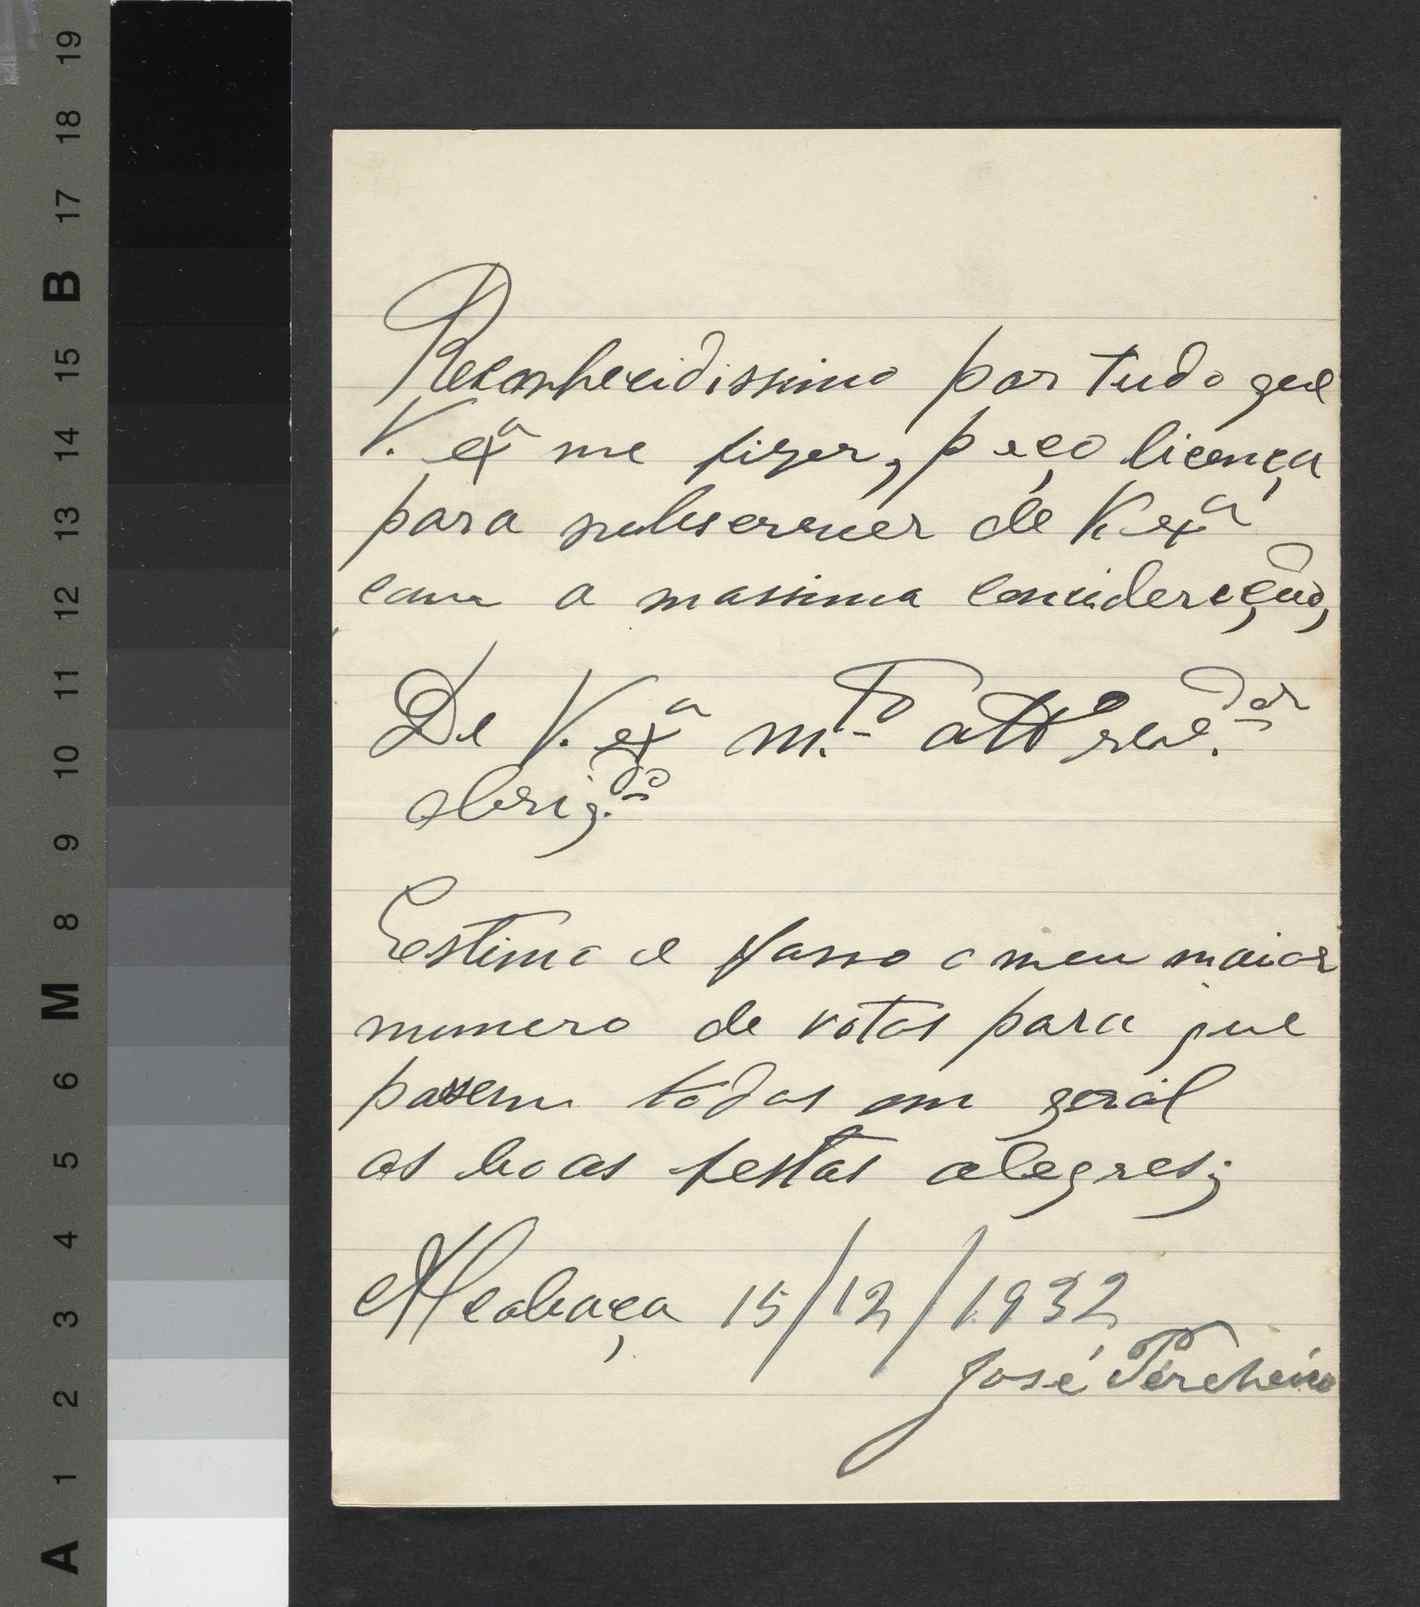 19
18
17
B
15
14
13
12
11
10
9
8
M
6
5
4
3
2
1
A
Reconhecidissimo por tudo que
V. exª me fizer, peço licença
para subscrever de V. exª
com a massima concideração,
De V. exª m.to attº
obrig.do
Estimo e fasso o meu maior
numero de votos para que
passem todos em geral
as boas festas alegres;
Alcobaça 15/12/1932
José